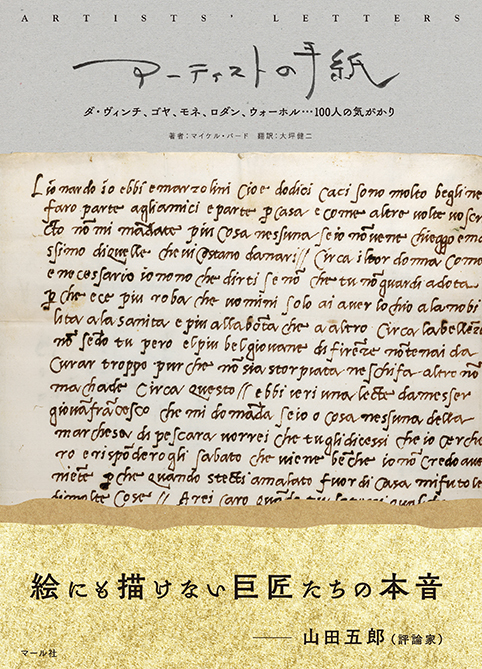 ARTISTS' LETTERS
アーティストの手紙
ダ・ヴィンチ、ゴヤ、モネ、ロダン、ウォーホル…100人の気がかり
著者：マイケル・バード　翻訳：大坪健二
Lionardo io ebbi e marzolini cioe dodici caci sono molto begli ne
faro parte agli amici e parte p casa e come altre volte vo scri
cto nō mi mādate piu cosa nessuna se io nō vene chieggo e ma
ssimo di quelle che vi costano danari // Circa il tor donna come
e necessario io nō o che dirti se nō che tu nō guardi a dota
p che ece piu roba che uomini solo ai aver lochio a la nobi
lita a la sanita e piu alla bōta che a altro Circa la
nō sēdo tu pero el piu bel giovane di firēze nō te nai da
curar troppo pur che nō sia storpiata ne schifa altro nō
machade Circa questo // ebbi ieri una lecte da messer
giovāfrācesco che mi domāda se io o cosa nessuna della
marchesa di pescara vorrei che tu gli dicessi che io cerche
ro e rispōderogli sabato che viene bēche io nō credo ave
niēte p che quando stecti amalato fuor di casa mi fu tole
di molte cose // Arei caro
絵にも描けない巨匠たちの本音
── 山田五郎（評論家）
マール社